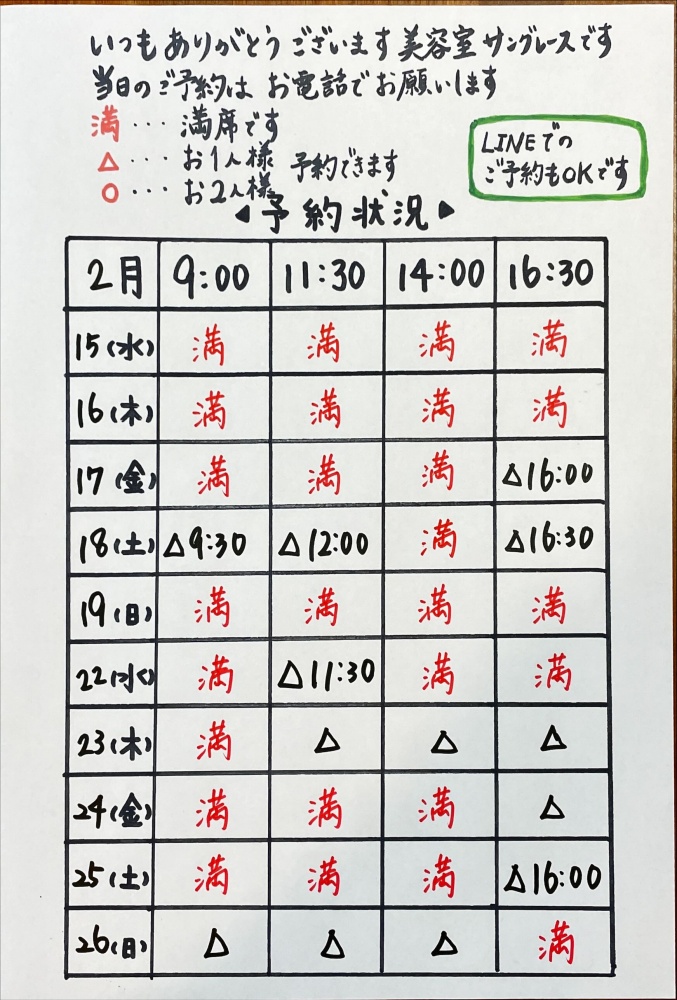 いつもありがとうございます美容室サングレースです
当日のご予約はお電話でお願いします
満・・・満席です
△・・・お1人様 予約できます
○・・・お2人様
LINEでの
ご予約もOKです
◀予約状況▶
2月 9:00 11:30 14:00 16:30
15(水) 満 満 満 満
16(木) 満 満 満 満
17(金) 満 満 満 △16:00
18(土) △9:30 △12:00 満 △16:30
19(日) 満 満 満 満
22(水) 満 △11:30 満 満
23(木) 満 △ △ △
24(金) 満 満 満 △
25(土) 満 満 満 △16:00
26(日) △ △ △ 満